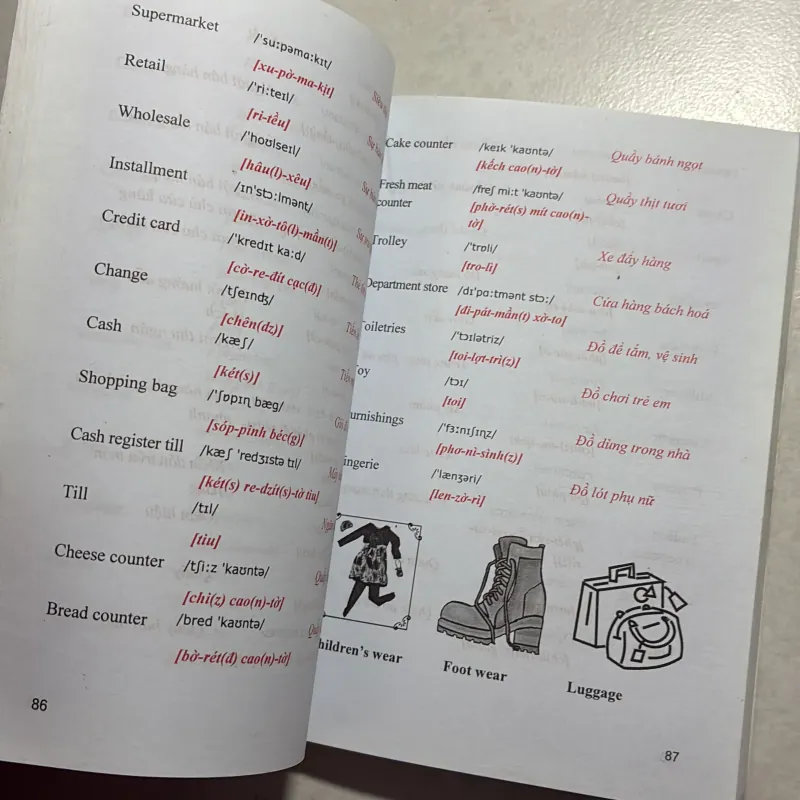 Supermarket
/ˈsuːpəmɑːkɪt/
[xu-pờ-ma-kịt]
Retail
/ˈriːteɪl/
[ri-tều]
Wholesale
/ˈhoʊlseɪl/
[hâu(l)-xêu]
Installment
/ɪnˈstɔːlmənt/
[in-xờ-tô(l)-mần(t)]
Credit card
/ˈkredɪt kaːd/
[cờ-re-đít cạc(đ)]
Change
/tʃeɪndʒ/
[chên(dz)]
Cash
/kæʃ/
[két(s)]
Shopping bag
/ˈʃɒpɪŋ bæg/
[sóp-pinh béc(g)]
Cash register till
/kæʃ ˈredʒɪstə tɪl/
[két(s) re-dzít(s)-tờ tiu]
Till
/tɪl/
[tiu]
Cheese counter
/tʃiːz ˈkaʊntə/
[chi(z) cao(n)-tờ]
Bread counter
/bred ˈkaʊntə/
[bờ-rét(đ) cao(n)-tờ]
86
Cake counter /keɪk ˈkaʊntə/ Quầy bánh ngọt
[kếch cao(n)-tờ]
Fresh meat /freʃ miːt ˈkaʊntə/ Quầy thịt tươi
counter [phờ-rét(s) mít cao(n)-
tờ]
Trolley /ˈtrɒli/ Xe đẩy hàng
[tro-lì]
Department store /dɪˈpɑːtmənt stɔː/ Cửa hàng bách hoá
[đi-pát-mần(t) xờ-to]
Toiletries /ˈtɔɪlətriz/ Đồ để tắm, vệ sinh
[toi-lợt-trì(z)]
oy /tɔɪ/ Đồ chơi trẻ em
[toi]
urnishings /ˈfɜːnɪʃɪŋz/ Đồ dùng trong nhà
[phơ-nì-sình(z)]
ingerie /ˈlænʒəri/ Đồ lót phụ nữ
[len-zờ-rì]
hildren's wear
Foot wear
Luggage
87